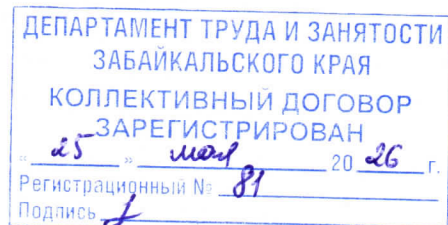 ДЕПАРТАМЕНТ ТРУДА И ЗАНЯТОСТИ
ЗАБАЙКАЛЬСКОГО КРАЯ
КОЛЛЕКТИВНЫЙ ДОГОВОР
ЗАРЕГИСТРИРОВАН
" 25 " мая 20 26 г.
Регистрационный № 81
Подпись